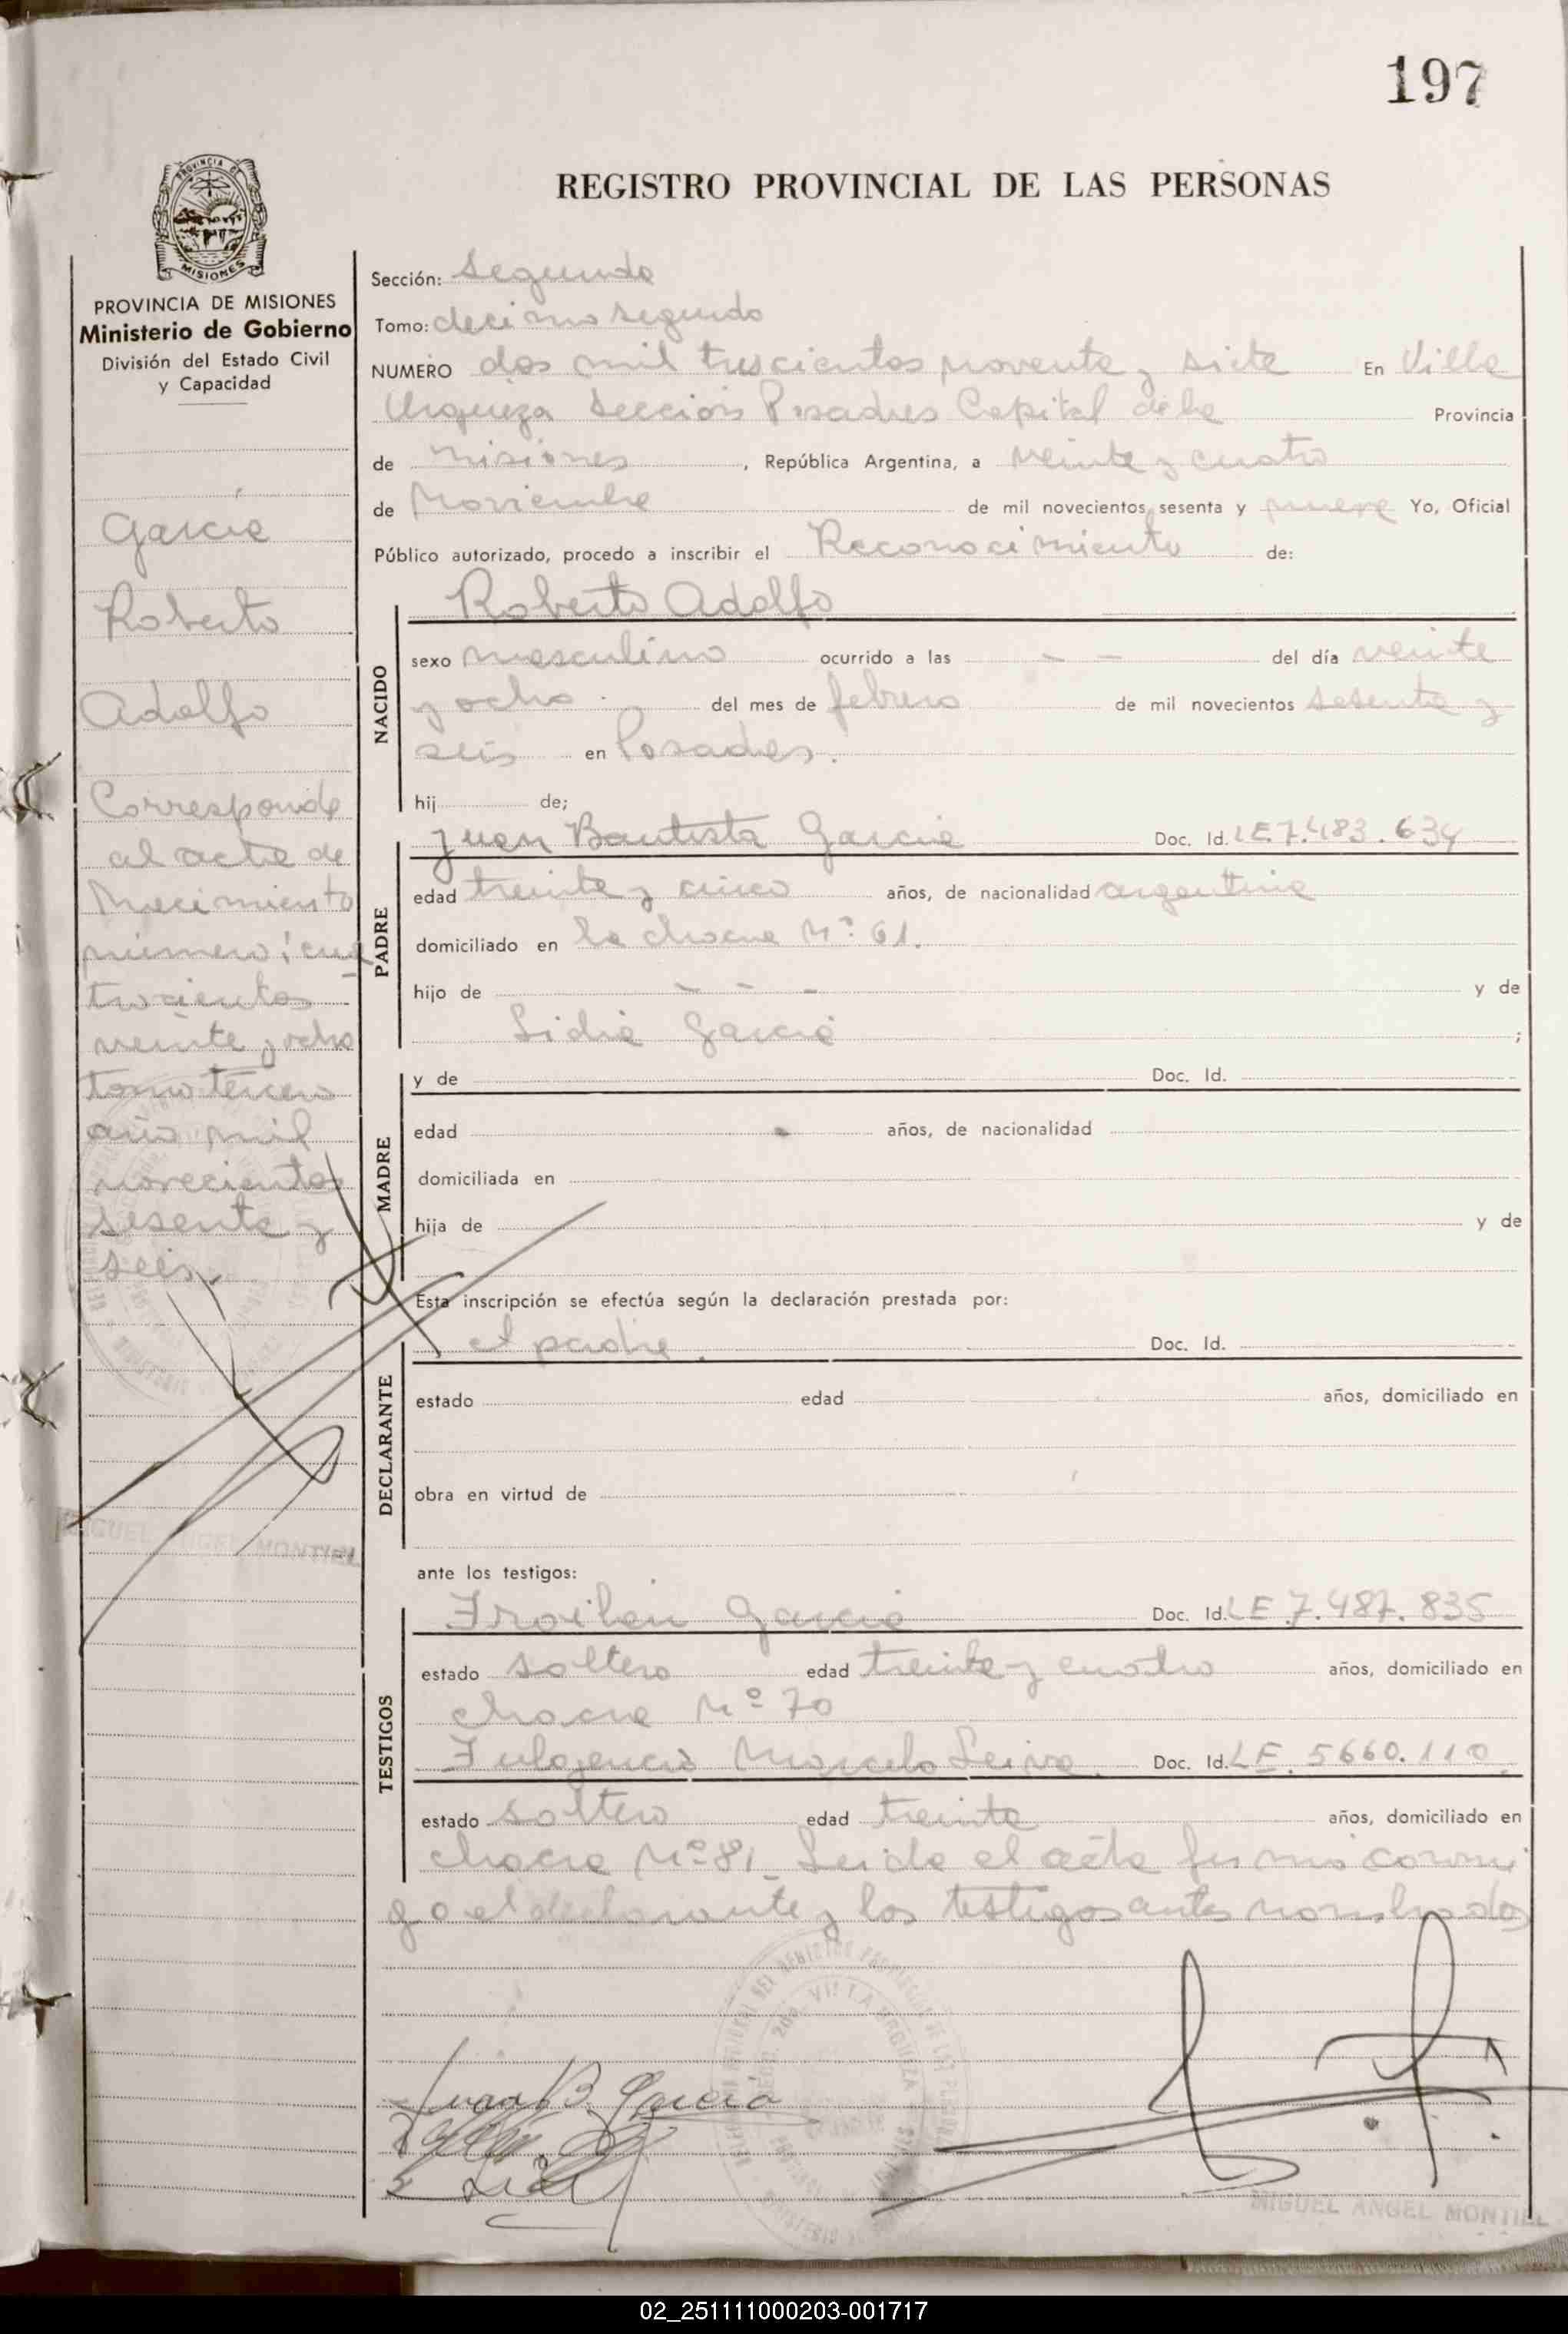 197
REGISTRO PROVINCIAL DE LAS PERSONAS
PROVINCIA DE MISIONES
MISIONES
PROVINCIA DE MISIONES
Ministerio de Gobierno
División del Estado Civil
y Capacidad
García
Roberto
Adolfo
Corresponde
al acta de
Nacimiento
número: cua
trocientos
veinte y ocho
tomo tercero
año mil
novecientos
sesenta y
seis.
MIGUEL ANGEL MONTIEL
Sección: Segunda
Tomo: decimo segundo
NUMERO dos mil trescientos noventa y siete En Villa
Urquiza Sección Posadas Capital de la Provincia
de Misiones, República Argentina, a veinte y cuatro
de Noviembre de mil novecientos sesenta y nueve Yo, Oficial
Público autorizado, procedo a inscribir el Reconocimiento de:
NACIDO
Roberto Adolfo
sexo masculino ocurrido a las - - del día veinte
y ocho del mes de febrero de mil novecientos sesenta y
seis en Posadas.
hij de;
PADRE
Juan Bautista García Doc. Id. LE 7.483.634
edad treinta y cinco años, de nacionalidad argentina
domiciliado en la chacra Nº 61.
hijo de - - - y de
Lidia García ;
MADRE
y de Doc. Id.
edad años, de nacionalidad
domiciliada en
hija de y de
Esta inscripción se efectúa según la declaración prestada por:
DECLARANTE
el padre. Doc. Id.
estado edad años, domiciliado en
obra en virtud de
ante los testigos:
TESTIGOS
Froilan García Doc. Id. LE 7.487.835
estado soltero edad treinta y cuatro años, domiciliado en
chacra Nº 70
Fulgencio Marcelo Leiva. Doc. Id. LE. 5660.110.
estado soltero edad treinta años, domiciliado en
chacra Nº 81_ Leida el acta firma conmi
go el declarante y los testigos antes nombrados
Juan B. García
MIGUEL ANGEL MONTIEL
02_251111000203-001717